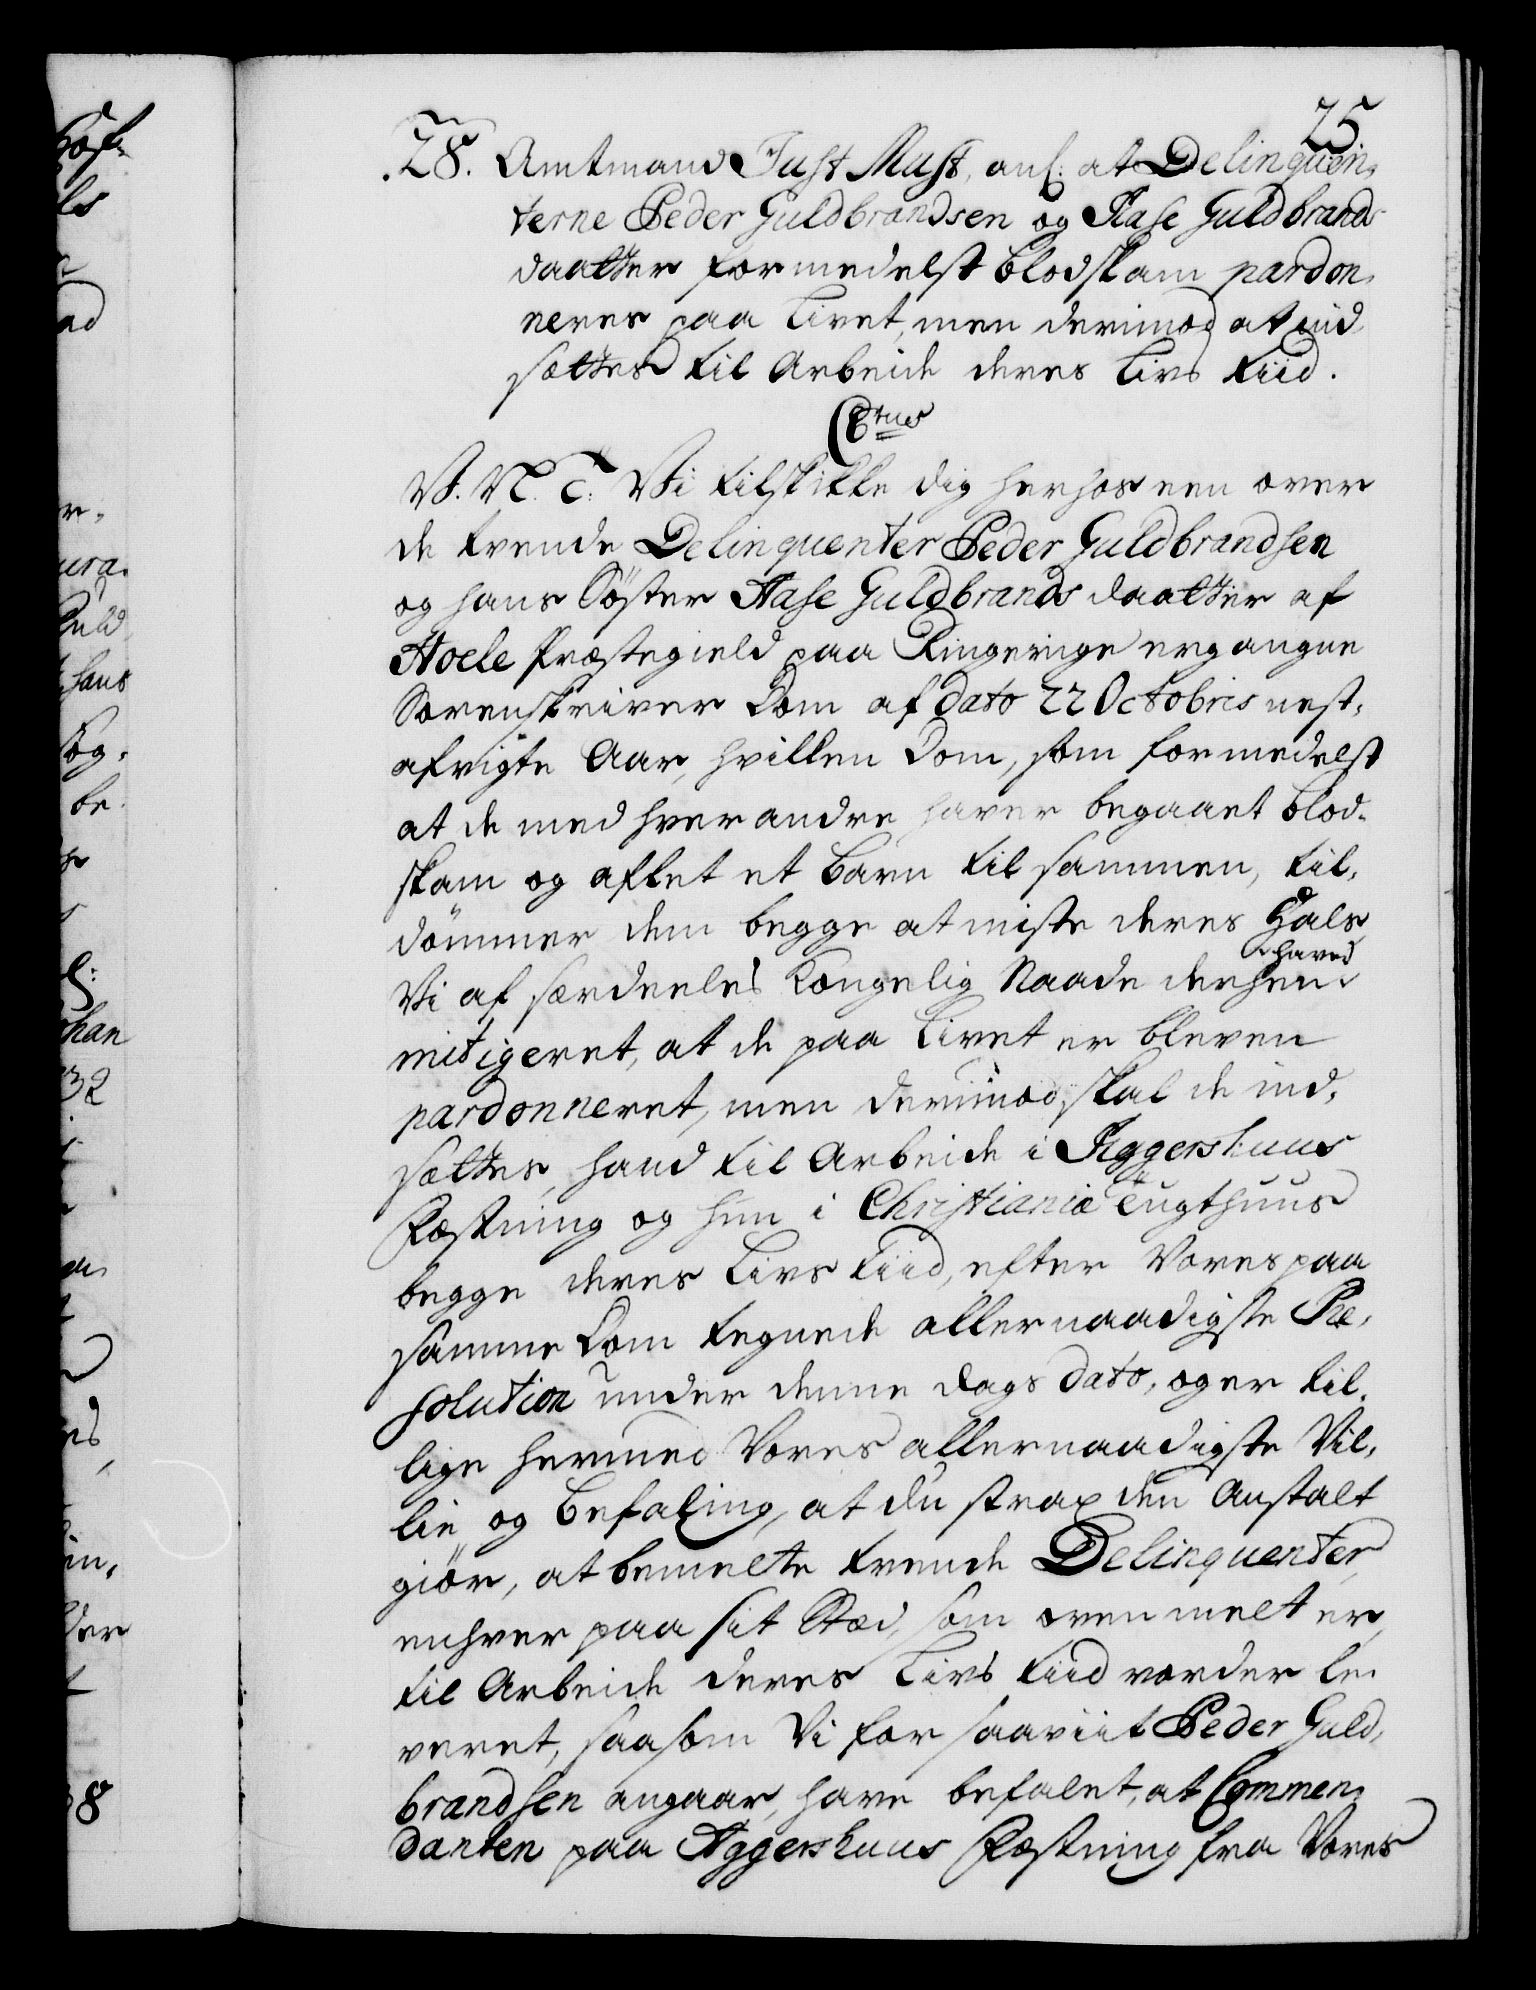 25
28. Amtmand Just Must, anl: at Delinquen,
terne Peder Guldbrandsen og Aase Guldbrands
daatter formedelst Blodskam pardon,
neres paa Livet, men derimod at ind
sættes til Arbeide deres Livs Tiid.
V. N. T. Vi tilskikke dig herhos een over
de tvende Delinquenter Peder Guldbrandsen
og hans Söster Aase Guldbrands daatter af
Hoele Præstegield paa Ringerige ergangne
Sorenskriver Dom af dato 22 Octobris nest,
afvigte Aar, hvilken Dom, som formedelst
at de med hverandre haver begaaet Blod-
skam og aflet et Barn tilsammen, til,
dömmer dem begge at miste deres Hals
haver
Vi af særdeeles Kongelig Naade derhen
mitigeret, at de paa Livet er bleven
pardonneret, men derimod skal de ind,
sættes, hand til Arbeide i Aggershuus
Fæstning og hun i Christianiæ Tugthuus
begge deres Livs Tiid, efter Vores paa
samme Dom tegnede allernaadigste Re,
solution under denne Dags dato, og er til,
lige hermed Vores allernaadigste Vil,
lie og Befaling, at du strax den Anstalt
giör, at bemelte tvende Delinquenter,
enhver paa sit Stæd, som ovenmelt er,
til Arbeide deres Livs Tiid vorder le,
veret, saasom Vi for saaviit Peder Guld,
brandsen angaar, have befalet, at Commen,
danten paa Aggershuus Fæstning fra Vores